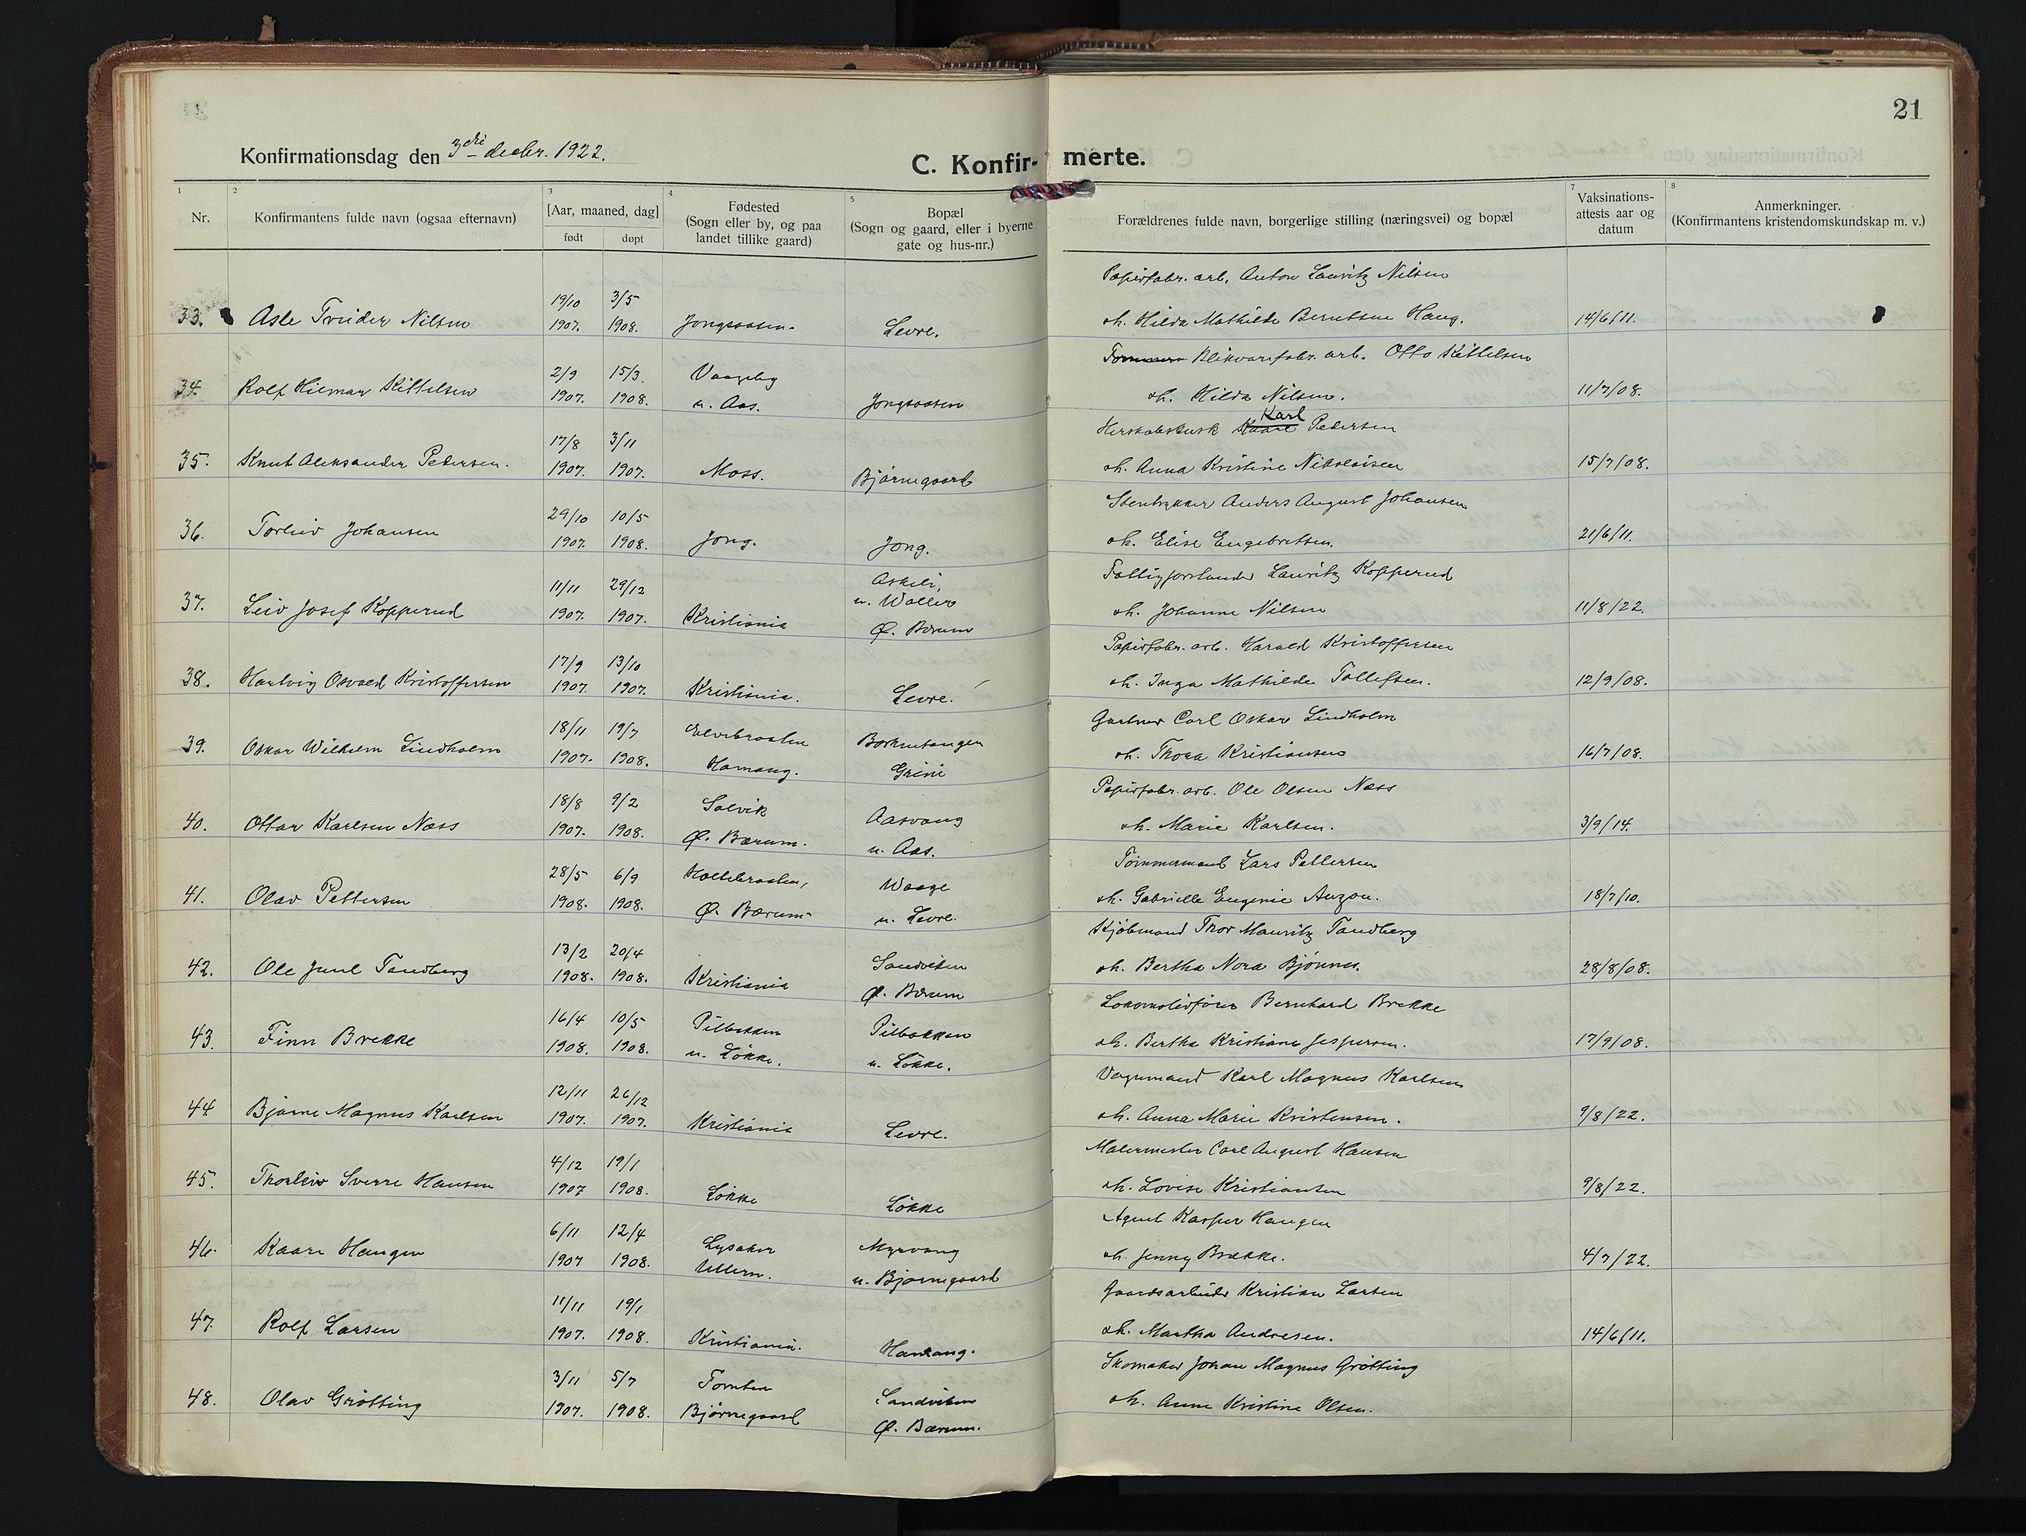 21
Konfirmationsdag den 3die decbr. 1922.
C. Konfirmerte.
1 2 3 4 5 7 8
Nr.
Konfirmantens fulde navn (ogsaa efternavn)
[Aar, maaned, dag]
født døpt
Fødested
(Sogn eller by, og paa
landet tillike gaard)
Bopæl
(Sogn og gaard, eller i byerne
gate og hus-nr.)
Forældrenes fulde navn, borgerlige stilling (næringsvei) og bopæl
Vaksinations-
attests aar og
datum
Anmerkninger.
(Konfirmantens kristendomskundskap m. v.)
19/10 3/5 Papirfabr. arb. Anton Lauritz Nilsen
33. Asle Nilsen 1907. 1908. Jongsaasen. Levre. oh. Hilda Mathilde Berntsen Haug. 14/6/11.
2/9 15/3. Blikvarefabr. arb. Otto Kittelsen
34. Rolf Hilmar Kittelsen 1907. 1908. u. Aas. Jongsaasen oh. Hilda Nilsen. 11/7/08.
17/8 3/11 Herskabskusk Karl Pedersen
35. Knut Aleksander Pedersen. 1907. 1907. Moss. Bjørnegaard oh. Anna Kristine Nikolaisen 15/7/08.
29/10 10/5 Stenhugger Anders August Johansen
36. Torleiv Johansen 1907. 1908. Jong. Jong. oh. Elise Engebretsen. 21/6/11.
11/11 29/12 Askeli, Fattigforstander Lauritz Kopperud
37. Leiv Josef Kopperud 1907. 1907. Kristiania u. Wøllew Ø. Bærum oh. Johanne Nilsen 11/8/22.
17/9 13/10 Papirfabr. arb. Harald Kristoffersen
38. Hartvig Osvald Kristoffersen 1907. 1907. Kristiania. Levre. oh. Inga Mathilde Tollefsen. 12/9/08.
18/11 19/7 Elvebraaten Gartner Carl Oskar Lindholm
39. Oskar Wilhelm Lindholm 1907. 1908. Hamang. Grini oh. Thora Kristiansen 16/7/08.
18/8 9/2 Solvik Aasvang Papirfabr. arb. Ole Olsen Næss
40. Ottar Karlsen Næss 1907. 1908. Ø. Bærum. u. Aas. oh. Marie Karlsen. 3/9/14.
28/5 6/9 Holtebraaten, Waage Tømmermand Lars Pettersen
41. Olav Pettersen 1908. 1908. Ø. Bærum. u. Levre. oh. Gabrielle Eugenie Auzon. 18/7/10.
13/2 20/4 Sandviken Kjøbmand Thor Mauritz Tandberg
42. Ole Juul Tandberg 1908. 1908. Kristiania Ø. Bærum oh. Bertha Nora Bjønnes. 28/8/08.
16/4 10/5 Pilbakken Pilbakken Lokomotivfører Bernhard Brekke
43. Finn Brekke 1908. 1908. u. Løkke. u. Løkke. oh. Bertha Kristiane Jespersen. 17/9/08.
12/11 26/12 Vognmand Karl Magnus Karlsen
44. Bjarne Magnus Karlsen 1907. 1907. Kristiania Levre. oh. Anna Marie Kristensen. 9/8/22.
4/12 19/1 Malermester Carl August Hansen
45. Thorleiv Sverre Hansen 1907 1908. Løkke Løkke oh. Lovise Kristiansen 9/8/22.
6/11 12/4 Lysaker Myrvang Agent Kasper Haugen
46. Kaare Haugen 1907 1908. Ullern. u. Bjørnegaard oh. Jenny Brekke. 4/7/22.
11/11 19/1 Gaardsarbeider Kristian Larsen
47. Rolf Larsen 1907. 1908. Kristiania. Hamang. oh. Martha Andresen. 14/6/11.
3/11 5/7 Sandviken Skomaker Johan Magnus Grøtting
48. Olav Grøtting 1907. 1908. Bjørnegaard Ø. Bærum. oh. Anne Kristine Olsen.